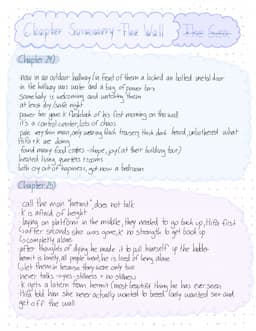 Chapter Summary - The Wall
The Sea
Chapter 24)
now in an outdoor hallway/in front of them a locked an bolted metal door
in the hallway was water and a bag of power bars
Somebody is welcoming and watching them
at least dry/safe night
power bar gave K flashback of his first morning on the wall
it's a control center, lots of chaos
pale very thin man, only wearing black trousers, thick dark beard, unbothered what
Hifa + K are doing
found many food crates - shape, joy (at their building tour)
heated living quarters rooms
both cry out of happiness, got now a bedroom
Chapter 25)
call the man "hermit" does not talk
K is afraid of height
laying on platform in the middle, they needed to go back up, Hifa first
↳ after seconds she was gone, K no strength to get back up
↳ completly alone
after thoughts of dying he made it to pull himself up the ladder
hermit is lonely, all people went, he is tired of being alone
↳ let them in because they were only two
never talks → yes - stillness + no stillness
K gets a latern from hermit (most beautiful thing he has ever seen)
Hifa told him she never actually wanted to breed (only wanted sex and
get off the wall